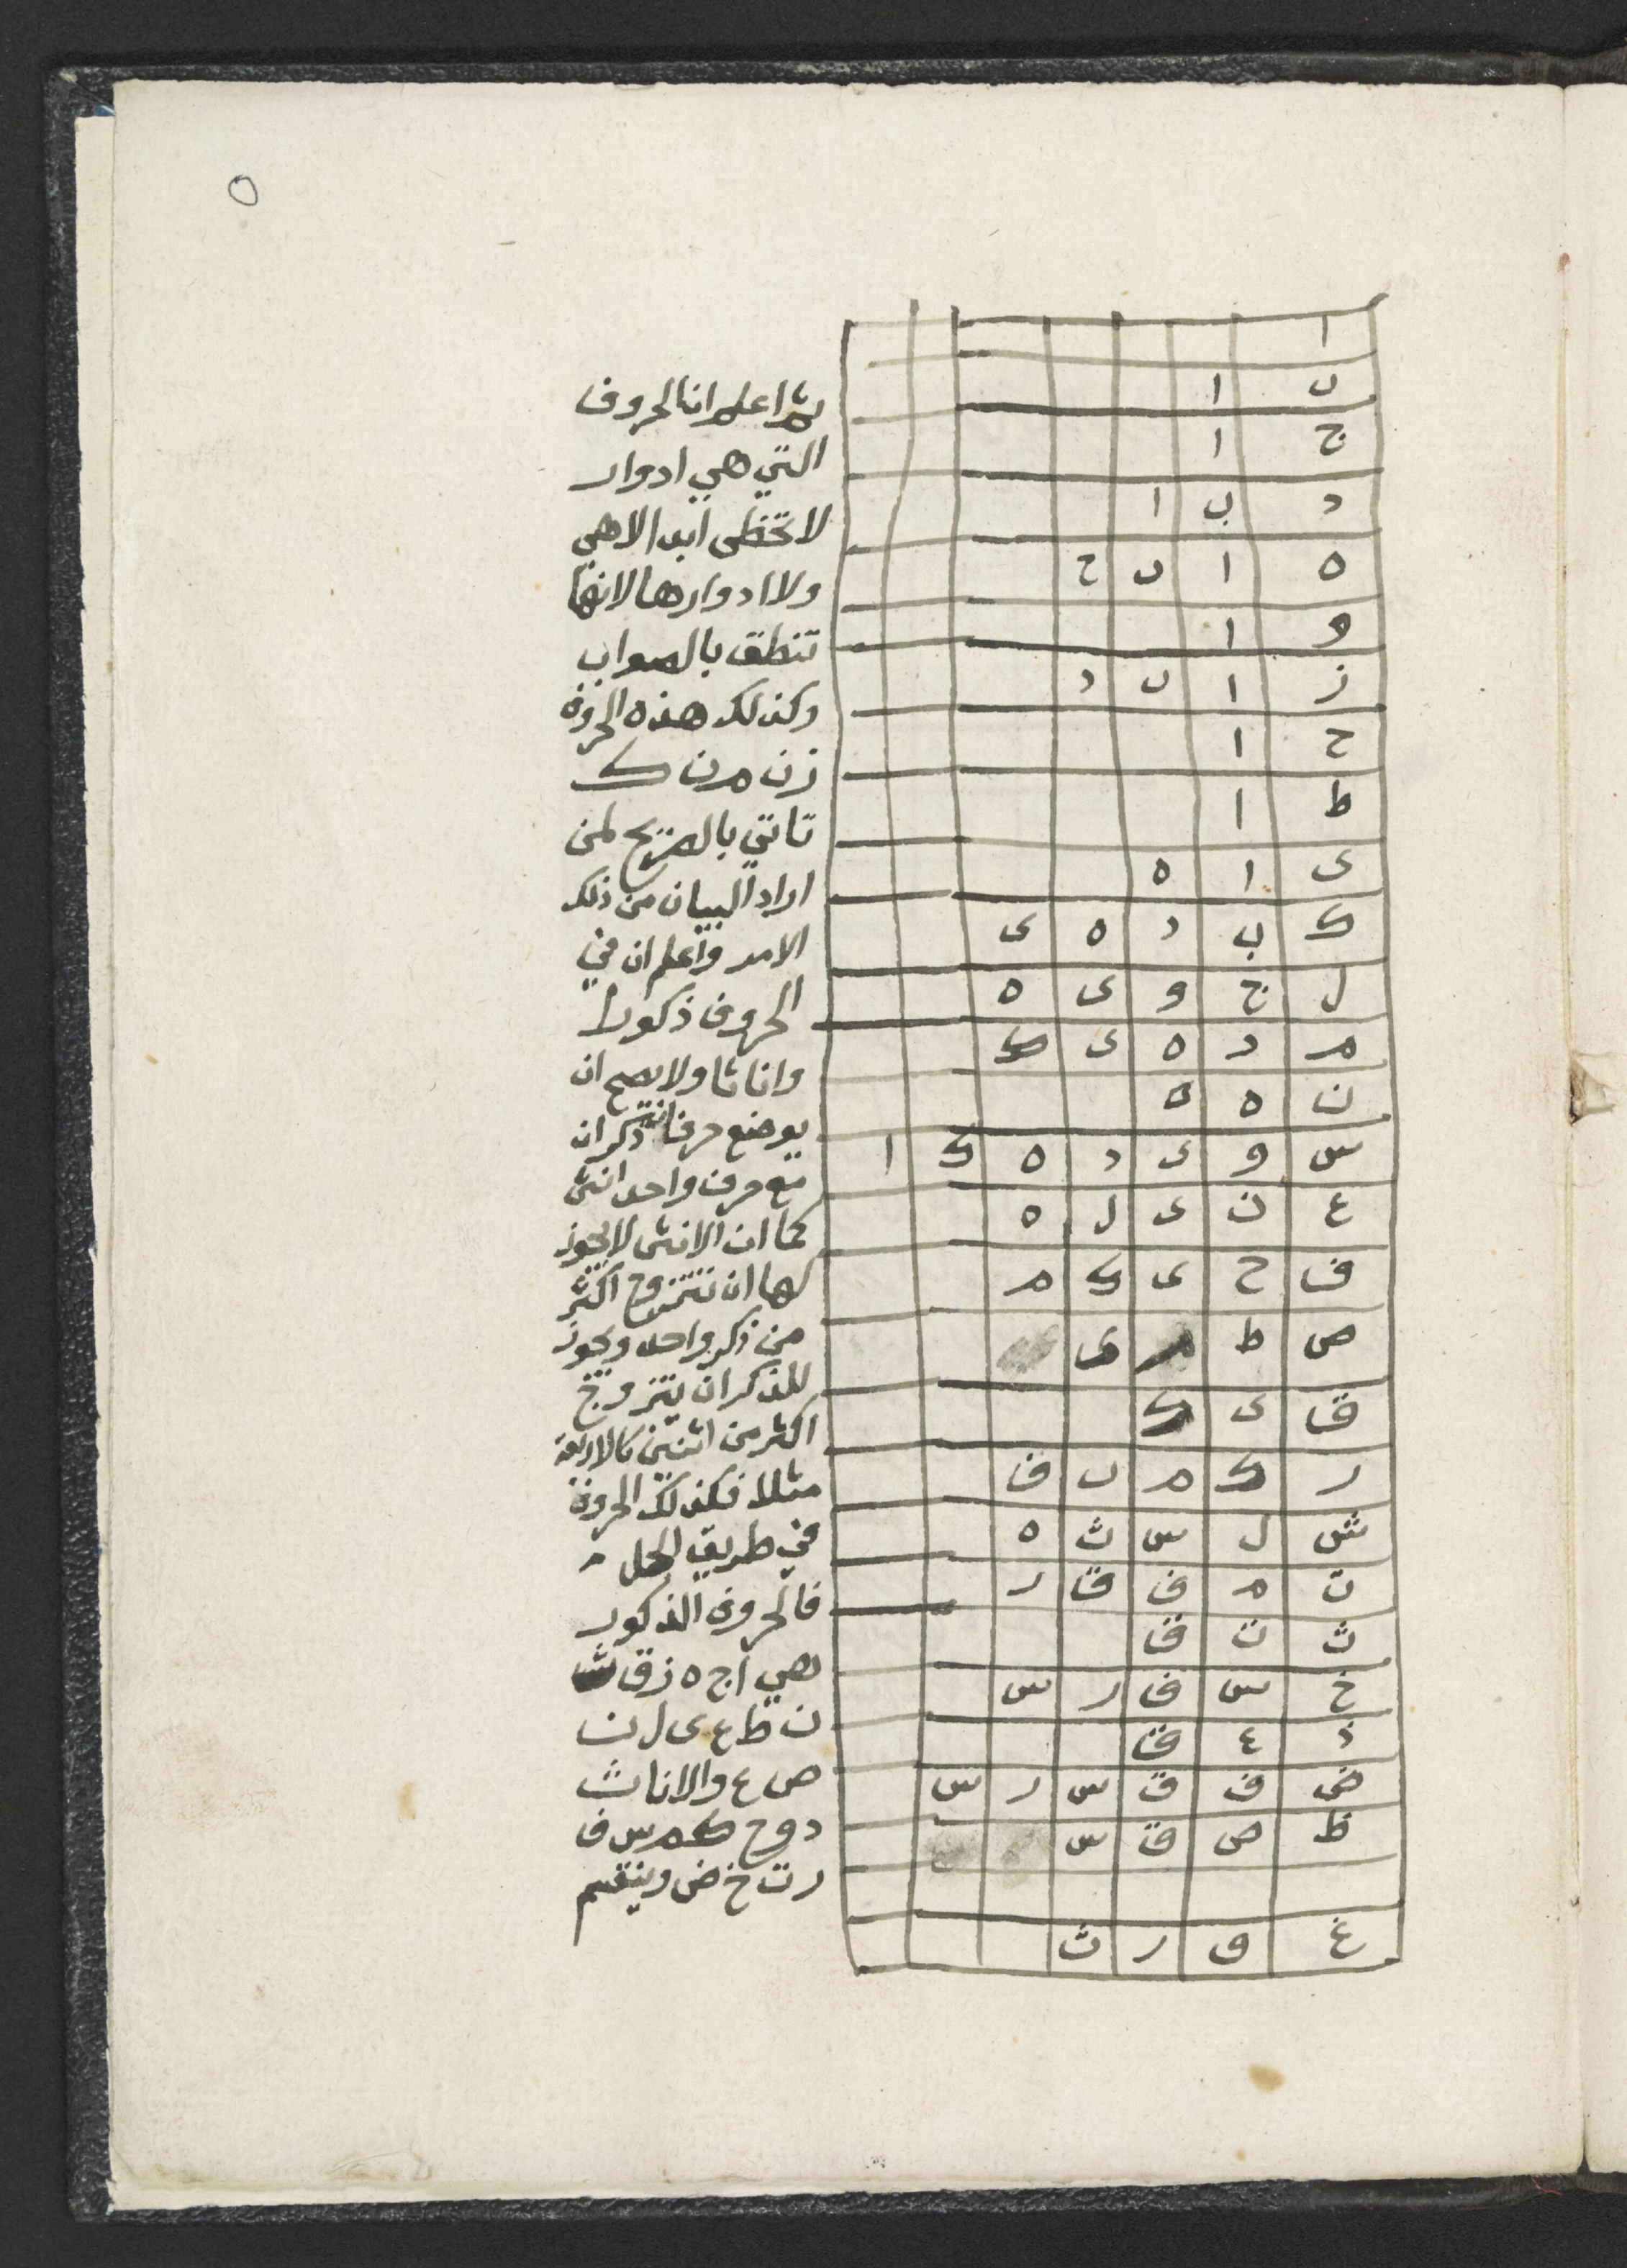 ٥
ا
ب ا
ج ا
د ب ا
ه ا ب ح
و ا
ز ا ب د
ح ا
ط ا
ى ا ه
ك ب د ه ى
ل ج و ى ه
م د ه ى ك
ن ه ى
س و ى د ه ك ا
ع ن ى ل ه
ف ح ى ك م
ص ط م ى
ق ى ك
ر ك م ب ف
ش ل س ث ه
ت م ف ق ر
ث ت ق
خ س ف ر س
ذ ع ق
ض ف ق س ر س
ظ ص ق س
غ ق ر ث
ثم اعلم ان الحروف
التي هي ادوار
لا تخطى ابدا لاهي
ولا ادوارها لانها
تنطق بالصواب
وكذلك هذه الحروف
زن م ن ك
تاتي بالصريح لمن
اراد البيان من ذلك
الامر واعلم ان في
الحروف ذكورا
واناثا ولا يصح ان
يوضع حرفان ذكران
مع حرف واحد انثى
كما ان الانثى لا يجوز
لها ان تتزوج اكثر
من ذكر واحد ويجوز
للذكر ان يتزوج
اكثر من اثنين كالاربعة
مثلا فكذلك الحروف
في طريق الحل م
فالحروف الذكور
هي ا ج ه ز ق ث
ن ظ ع ى ل ن
ص ع والاناث
د و ح ك م س ف
ر ت خ ض وينقسم